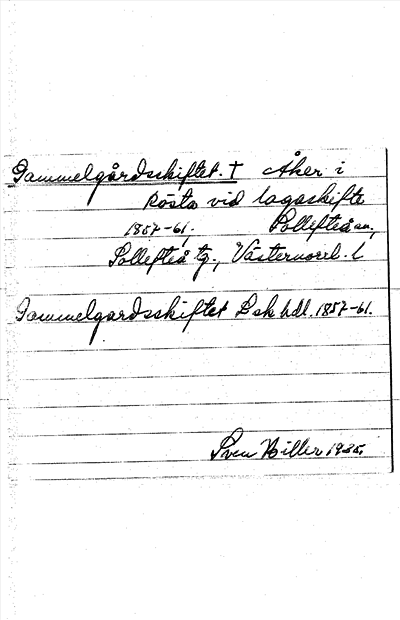 Gammelgårdsskiftet. † Åker i
Rösta vid lagaskifte
1857-61. Sollefteå sn.,
Sollefteå tg., Västernorrl. l
Gammelgardsskiftet Lsk hdl. 1857-61.
Sven Hiller 1935.